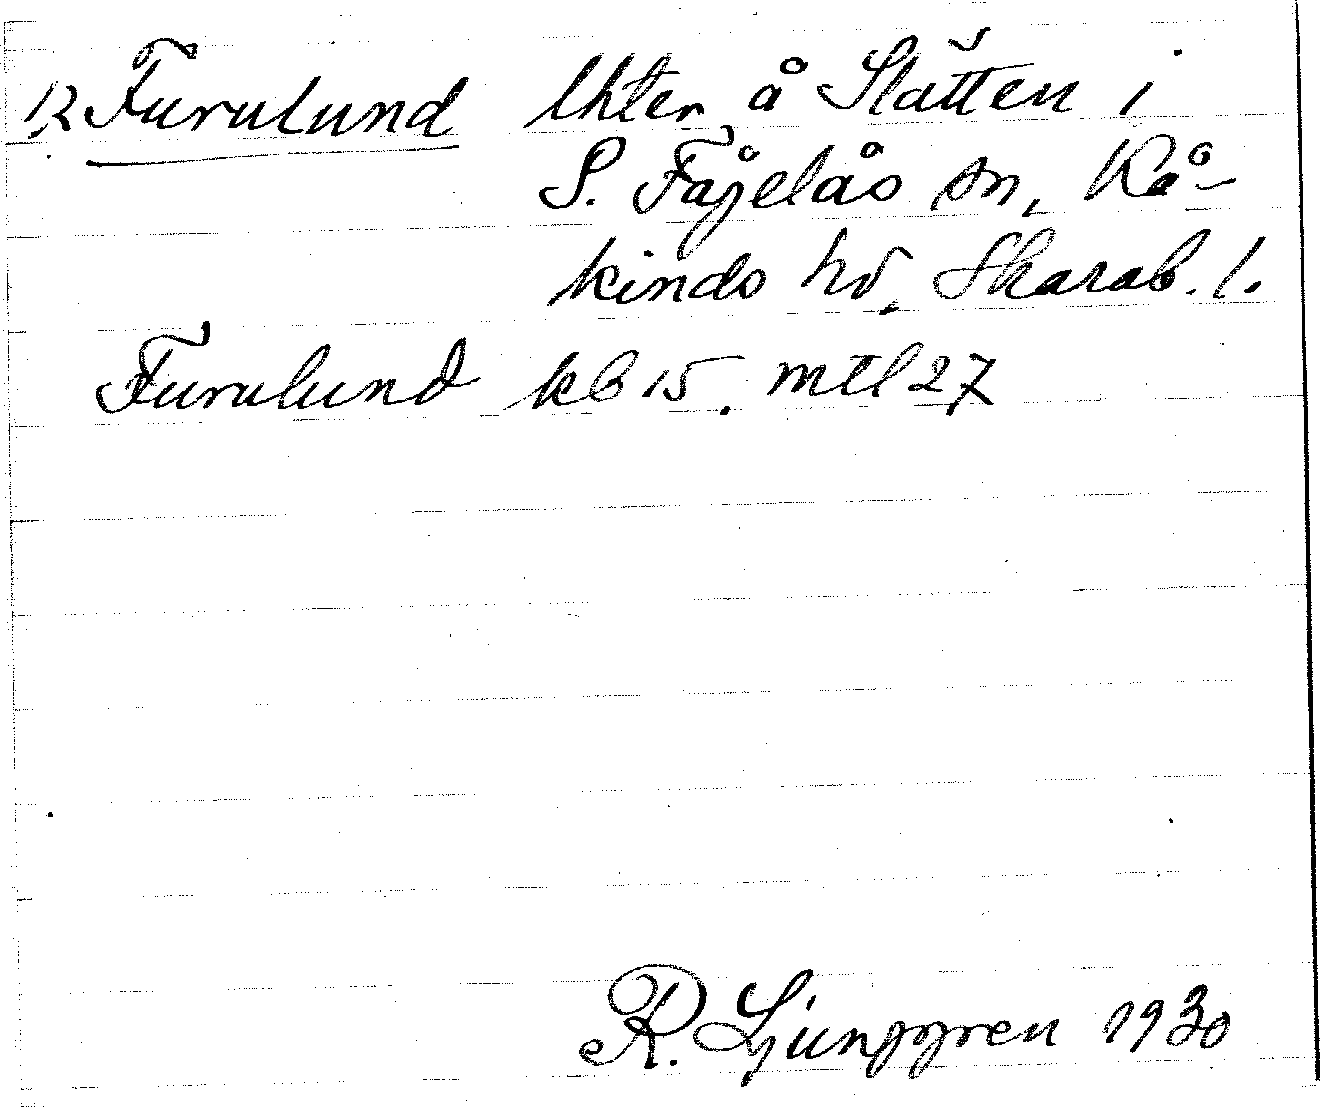 R Furulund lhter å Slätten i
S. Fågelås sn, Kå-
kinds hd, Skarab. l.
Furulund kb 15. mtl 27
R. Ljunggren 1930